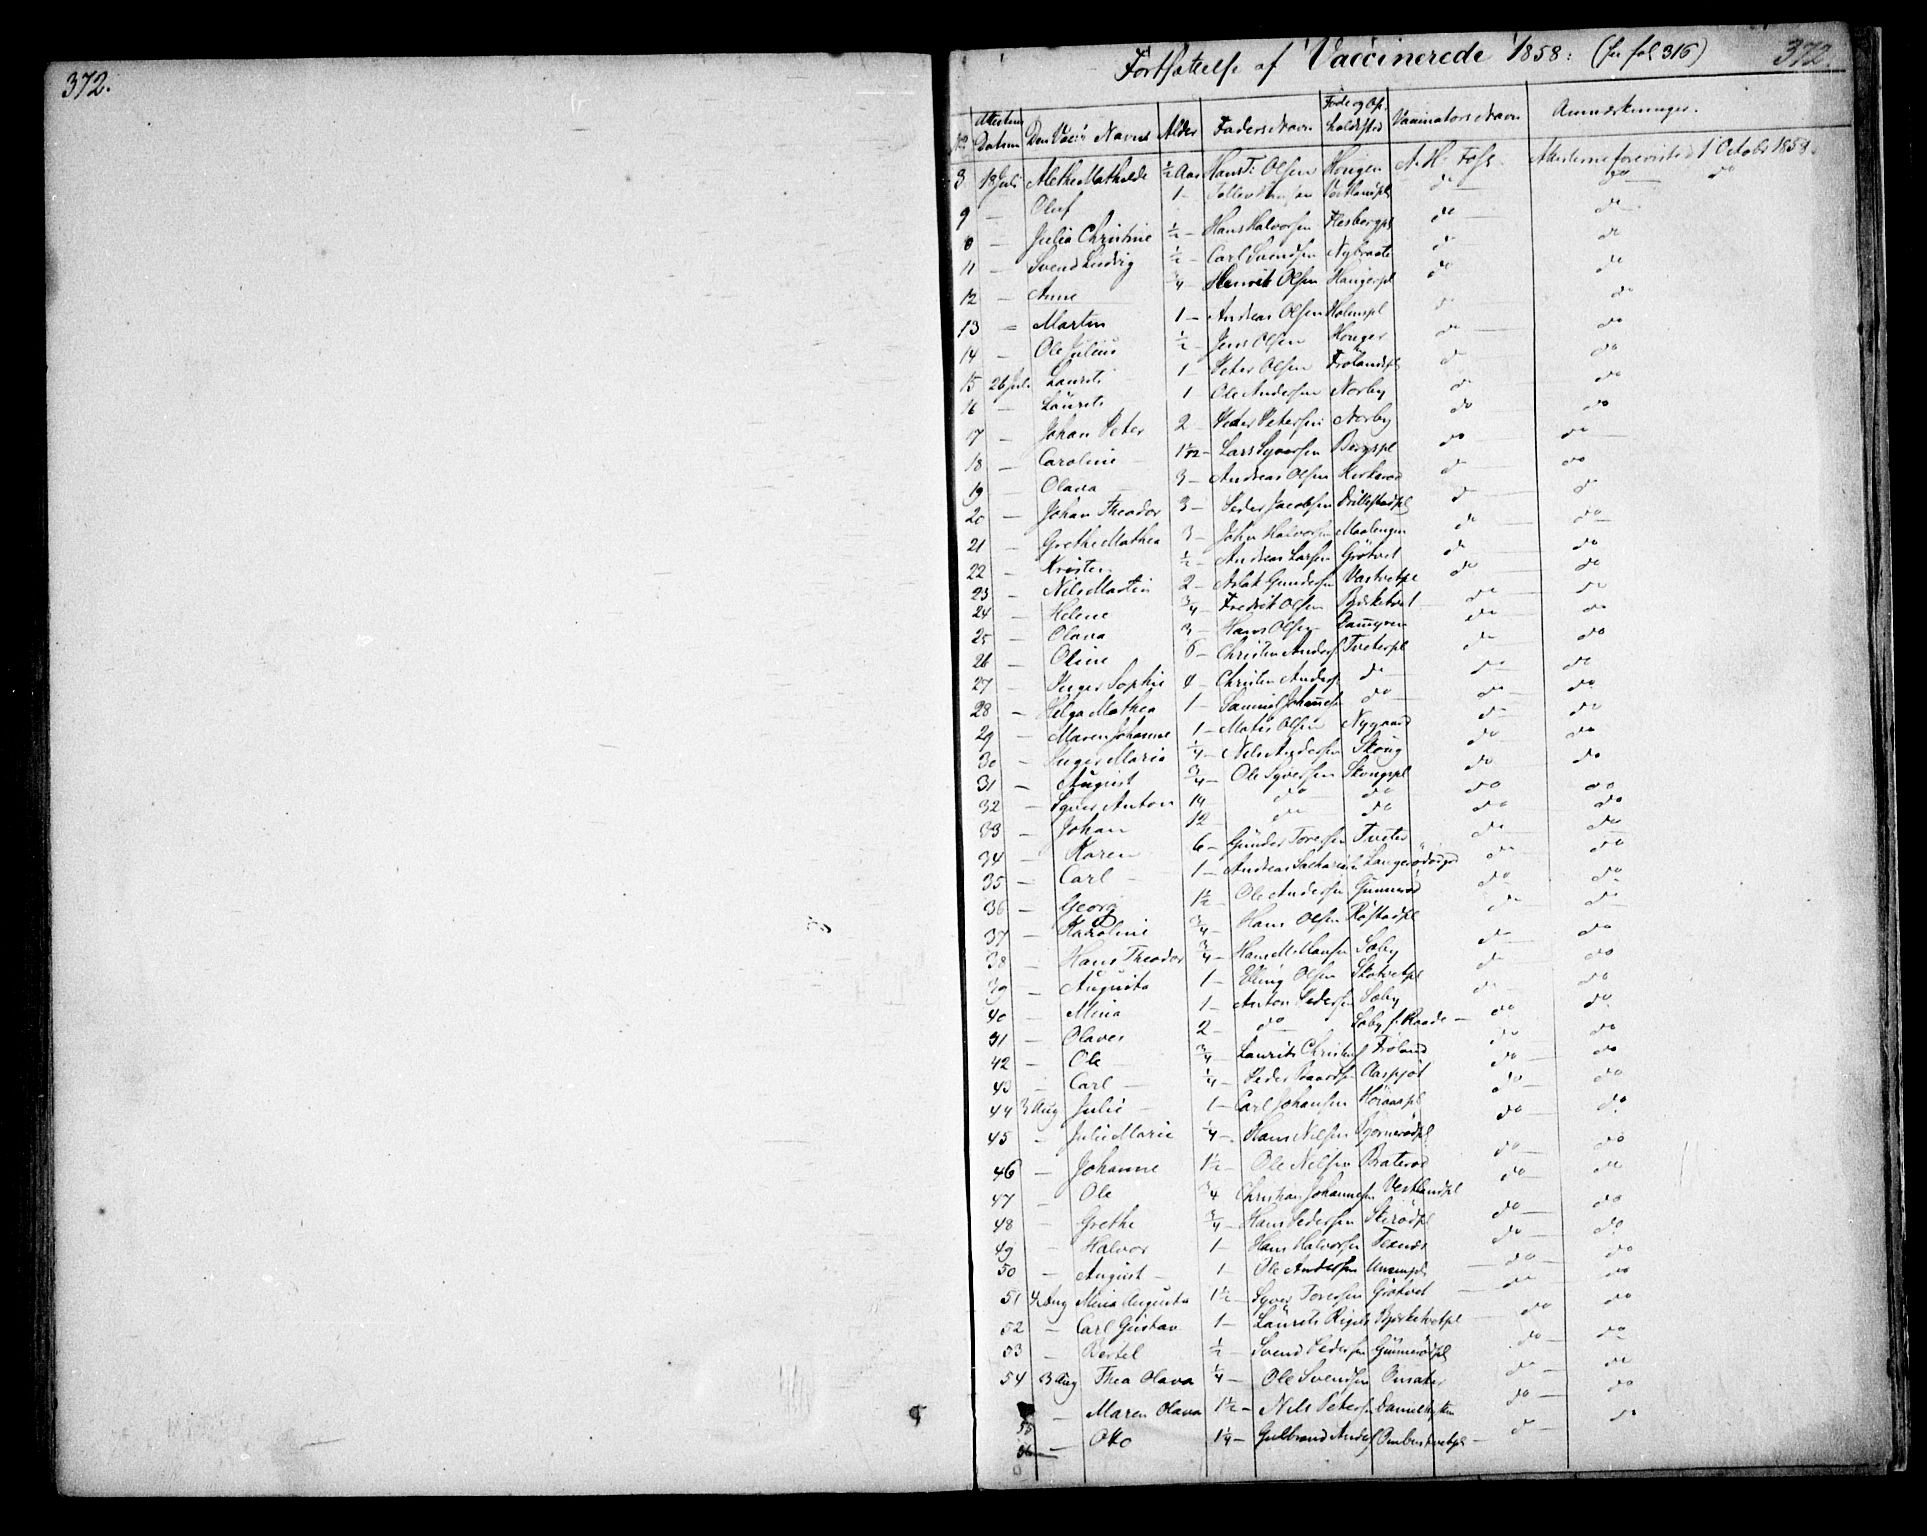 372.
Fortsættelse af Vaccinerede 1858: (fr fol 316) 372.
No Attestens Datum Den Vacc: Navne Alder Faders Navn Føde og Op. holdssted Vaccinators Navn Anmærkninger.
8 18 Juli Alethe Mathilde ½ Aar Hans T: Olsen Hougen A. H. Foss. Attesterne forevist d 1 Octobr 1858.
9 — Oluf 1 — do do do
0 — Julia Christine ½ — Hans Halvorsen Flesbergpl do do
11 — Svend Ludvig ½ — Carl Svendsen Nybraate do do
12 — Anne ¾ Henrik Olsen Haugerpl do do
13 — Martin 1 — Andreas Olsen Holmspl do do
14 — Ole Julius ½ — Jens Olsen Houger do do
15 26 Juli Laurits 1 Peter Olsen Frølandspl do do
16 — Laurits 1 Ole Andersen Norby do do
17 — Johan Peter 2 — Peder Petersen Norby do do
18 — Caroline 1½ — Lars Syversen Bergspl do do
19 — Olava 3 — Andreas Olsen Kirkerød do do
20 — Johan Theodor 3 — Peder Jacobsen Drillestadpl do do
21 — Grethe Mathea 3 — John Halvorsen Maalengen do do
22 — Kristen ½ — Andreas Larsen Grøtvet do do
23 — Nils Martin 2 — Aslak Gundersen Vastvetpl do do
24 — Helene ¾ — Fredrik Olsen Bjerketvet do do
25 — Olava 3 — Hans Olsen do do
26 — Oline 6 — Christen Anders Tveterpl do do
27 — Inger Sophie 4 — Christen Anders do do do
28 — Helga Mathea 1 — Samuel Johannes do do do
29 — Maren Johanne 1 — Matis Olsen Nygaard do do
30 — Inger Maria ¼ — Nils Andersen Skoug do do
31 — August ¾ — Ole Syversen Skougspl do do
32 — Syver Anton 14 do do do do
33 — Johan 12 do do do do
34 — Karen 6 — Gunder Toresen Tveter do do
35 — Carl 1 — Andreas Sacharias Langerødødegd do do
36 — Georg 1½ Ole Andersen Gunnerød do do
37 — Karoline ¾ — Hans Olsen Røstadpl do do
38 — Hans Theodor ¾ — Hans M. Hansen Saby do do
39 — Augusta 1 — Elling Olsen Skotvetpl do do
40 — Mina 1 — Anton Pedersen Saby do do
41 — Olaves 2 — do Saby f. Raade — do do
42 — Ole ¾ — Laurits Christens Frøland do do
43 — Carl — ¼ — Peder do do
44 3 Aug Julie — 1 — Carl Johansen do do
45 — Julie Marie ¼ — Hans Nilsen do do
46 — Johanne 1½ — Ole Nilsen Braterød do do
47 — Ole ¾ Christian Johannesen Vestlandpl do do
48 — Grethe ¾ — Hans Pedersen Skirødpl do do
49 — Halvor 1 — Hans Halvorsen Texnæs do do
50 — August — 1 — Ole Andersen do do
51 4 Aug Mina Augusta 1½ — Syver Toresen Grøtvet do do
52 — Carl Gustav 1 — Laurits Bjerketvetpl do do
53 — Kertel ½ — Svend Pedersen Gunnerødpl do do
54 13 Aug Thea Olava ¼ — Ole Svendsen Onsaker do do
55 — Maren Olava 1½ — Nils Petersen do do
56 — Otto 1¼ — Gulbrand Anders do do